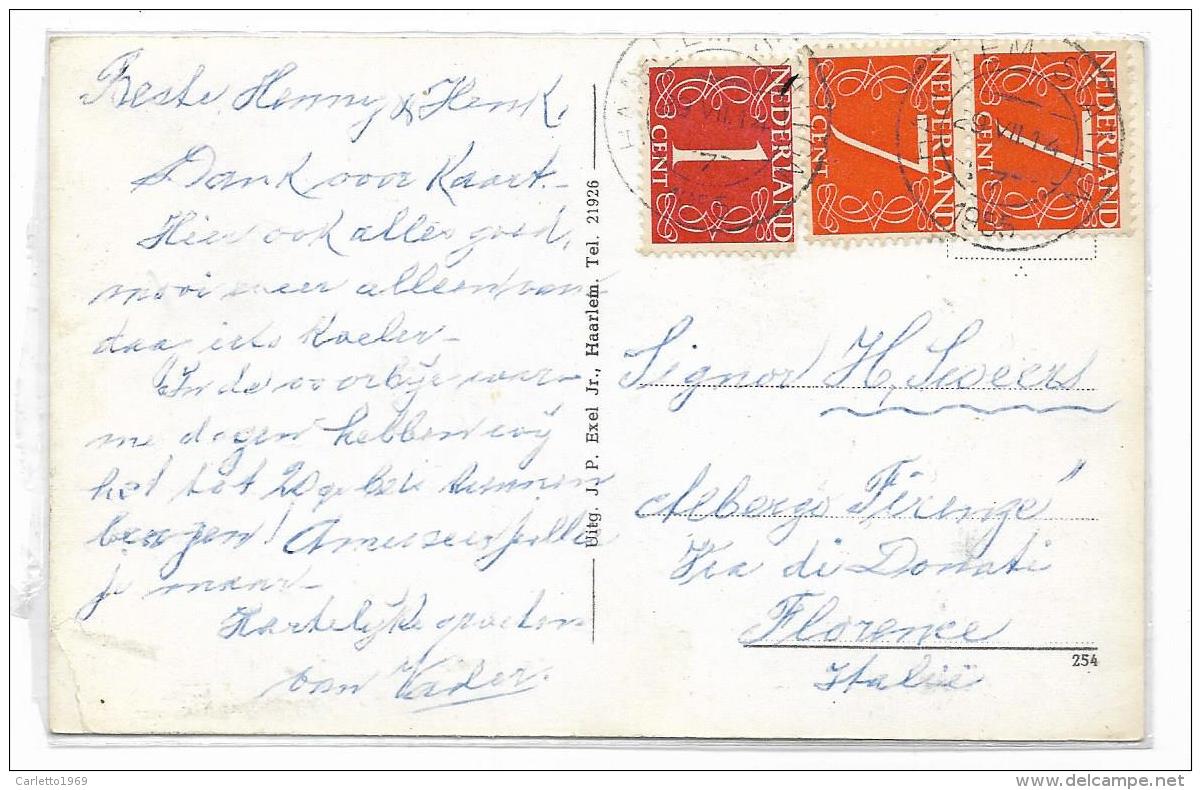 Beste Henny & Henk,
Dank voor Kaart.
Hier ook alles goed,
mooi weer alleen van
daag iets Koeler.
In de voorbije war-
me dagen hebben wij
het tot 20 gebracht
bergen! Amuseer jullie
je maar
Hartelijke groeten
van Vader.
Uitg. J. P. Exel Jr., Haarlem. Tel. 21926
NEDERLAND
1
CENT
NEDERLAND
7
CENT
NEDERLAND
7
CENT
29 VII.14
1955
Signor H. Sweers
Albergo "Firenze"
Via di Donati
Florence
Italië
254
Carletto1969
delcampe.net